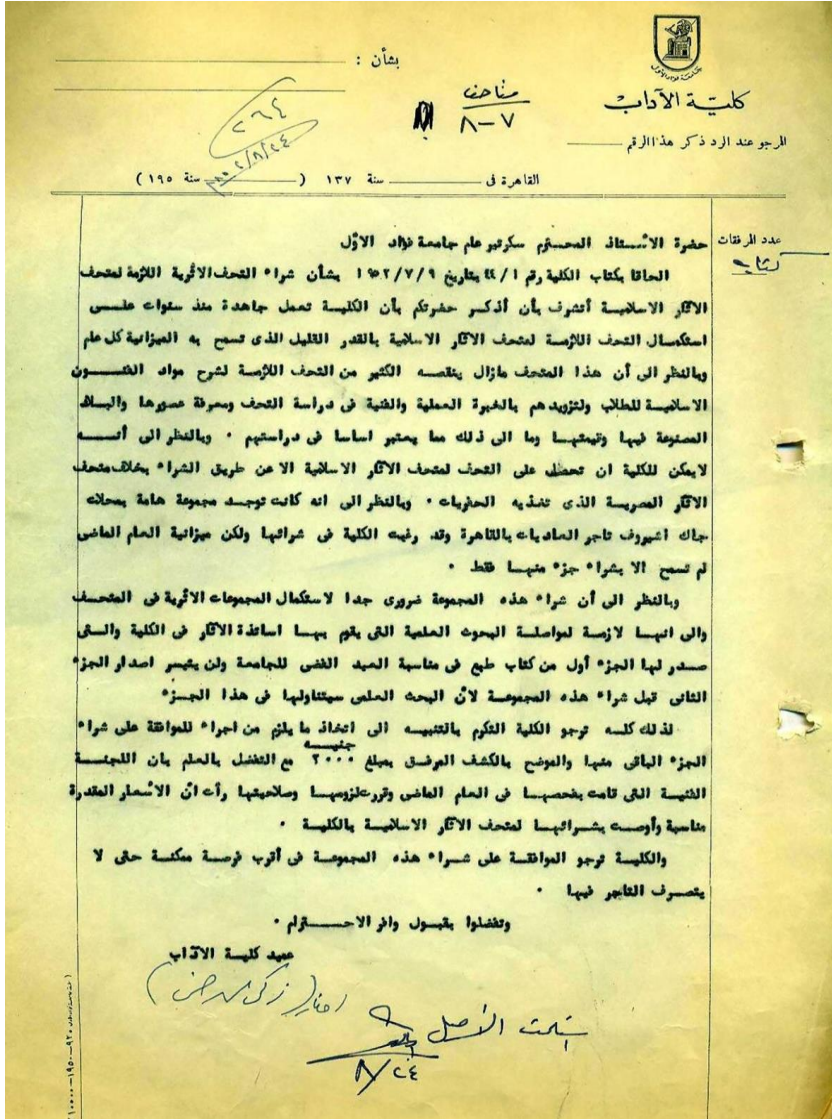 جامعة فؤاد الأول
كلية الآداب
المرجو عند الرد ذكر هذا الرقم
متاحف
٧-٨
بشأن :
٢٦٤
٢٤/٨/٩٥٢
القاهرة فى سنة ١٣٧ ( سنة ١٩٥ )
عدد المرفقات
حضرة الأستاذ المحترم سكرتير عام جامعة فؤاد الأول
الحاقا بكتاب الكلية رقم ٤٤/١ بتاريخ ١٩٥٢/٧/٩ بشأن شراء التحف الاثرية اللازمة لمتحف
الآثار الاسلامية أتشرف بأن أذكر حضرتكم بأن الكلية تعمل جاهدة منذ سنوات على
استكمال التحف اللازمة لمتحف الآثار الاسلامية بالقدر القليل الذى تسمح به الميزانية كل عام
وبالنظر الى أن هذا المتحف مازال ينقصه الكثير من التحف اللازمة لشرح مواد الفنون
الاسلامية للطلاب ولتزويدهم بالخبرة العملية والفنية فى دراسة التحف ومعرفة عصورها والبلاد
المصنوعة فيها وقيمتها وما الى ذلك مما يعتبر اساسا فى دراستهم ٠ وبالنظر الى أنه
لايمكن للكلية ان تحصل على التحف لمتحف الآثار الاسلامية الا عن طريق الشراء بخلاف متحف
الآثار المصرية الذى تغذيه الحفريات ٠ وبالنظر الى انه كانت توجد مجموعة هامة بمحلات
جاك اشيروف تاجر العاديات بالقاهرة وقد رغبت الكلية فى شرائها ولكن ميزانية العام الماضى
لم تسمح الا بشراء جزء منها فقط ٠
وبالنظر الى أن شراء هذه المجموعة ضرورى جدا لاستكمال المجموعات الاثرية فى المتحف
والى انها لازمة لمواصلة البحوث العلمية التى يقوم بها اساتذة الآثار فى الكلية والتى
صدر لها الجزء أول من كتاب طبع فى مناسبة العيد الفضى للجامعة ولن يتيسر اصدار الجزء
الثانى قبل شراء هذه المجموعة لأن البحث العلمى سيتناولها فى هذا الجزء
لذلك كله ترجو الكلية التكرم بالتنبيه الى اتخاذ ما يلزم من اجراء للموافقة على شراء
الجزء الباقى منها والموضح بالكشف المرفق بمبلغ ٢٠٠٠ جنيه مع التفضل بالعلم بان اللجنة
الفنية التى قامت بفحصها فى العام الماضى وقررت لزومها وصلاحيتها رأت ان الأسعار المقدرة
مناسبة وأوصت بشرائها لمتحف الآثار الاسلامية بالكلية ٠
والكلية ترجو الموافقة على شراء هذه المجموعة فى أقرب فرصة ممكنة حتى لا
يتصرف التاجر فيها ٠
وتفضلوا بقبول وافر الاحترام ٠
عميد كلية الآداب
امضاء ( زكى محمد حسن )
استلمت الأصل
٢٤/٨